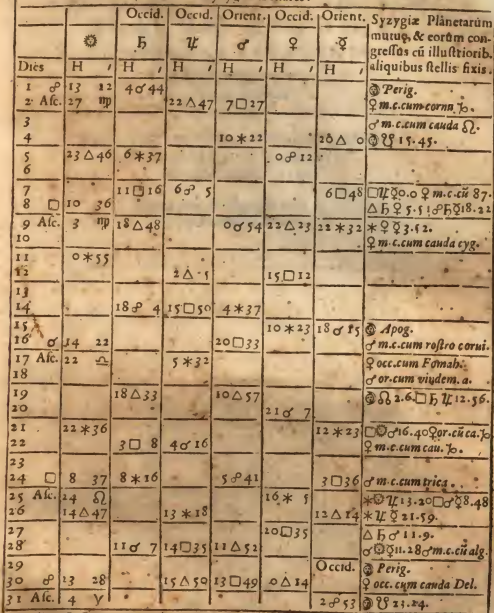 Occid. Occid. Orient. Occid. Orient. Syzygiæ Planetarũ
☼ ♄ ♃ ♂ ♀ ☿ mutuę, & eorũm con-
gressus cũ illustriorib.
Dies H ′ H ′ H ′ H ′ H ′ H ′ aliquibus stellis fixis.
1 ☍ 13 22 4☌44 Perig.
2 Asc. 27 ♍ 22△47 7□27 ♀ m.c.cum cornu ♑.
3 ♂ m.c.cum cauda ♌.
4 10✶22 20△0 ☋ 15.45.
5 23△46 6✶37 0☍12
6
7 11□16 6☍5 6□48 □♃☿0.0 ♀ m.c.cũ 87.
8 □ 10 36 △♄♀5.51☍♄☿18.22
9 Asc. 3 ♍ 18△48 0☌54 22△23 22✶32 ✶♀☿3.52.
10 ♀ m.c.cum cauda cyg.
11 0✶55
12 2△5 15□12
13
14 18☍4 15□50 4✶37
15 10✶23 18☌15 Apog.
16 ☌ 14 22 20□33 ♂ m.c.cum rostro corui.
17 Asc. 22 ♎ 5✶32 ♀ occ.cum Fomah.
18 ♂ or.cum vindem. a.
19 18△33 10△57 ☊ 2.6.□♄♃12.56.
20 21☌7
21 22✶36 12✶23 □☼♂16.40♀or.cũ ca.♑.
22 3□8 4☌16 ♀ m.c.cum cau. ♑.
23
24 □ 8 37 8✶16 5☍41 3□36 ♂ m.c.cum trica.
25 Asc. 24 ♌ 16✶5 ✶☼♃13.20□♂☿8.48
26 14△47 13✶18 12△14 ✶♃☿21.59.
27 20□35 △♄♂11.9.
28 11☌7 14□35 11△52 ☌☼☿11.28♂m.c.cũ alg.
29 Occid. Perig.
30 ☍ 13 28 15△50 13□49 0△14 ♀ occ. cum cauda Del.
31 Asc. 4 ♈ 2☍53 ☋ 23.24.